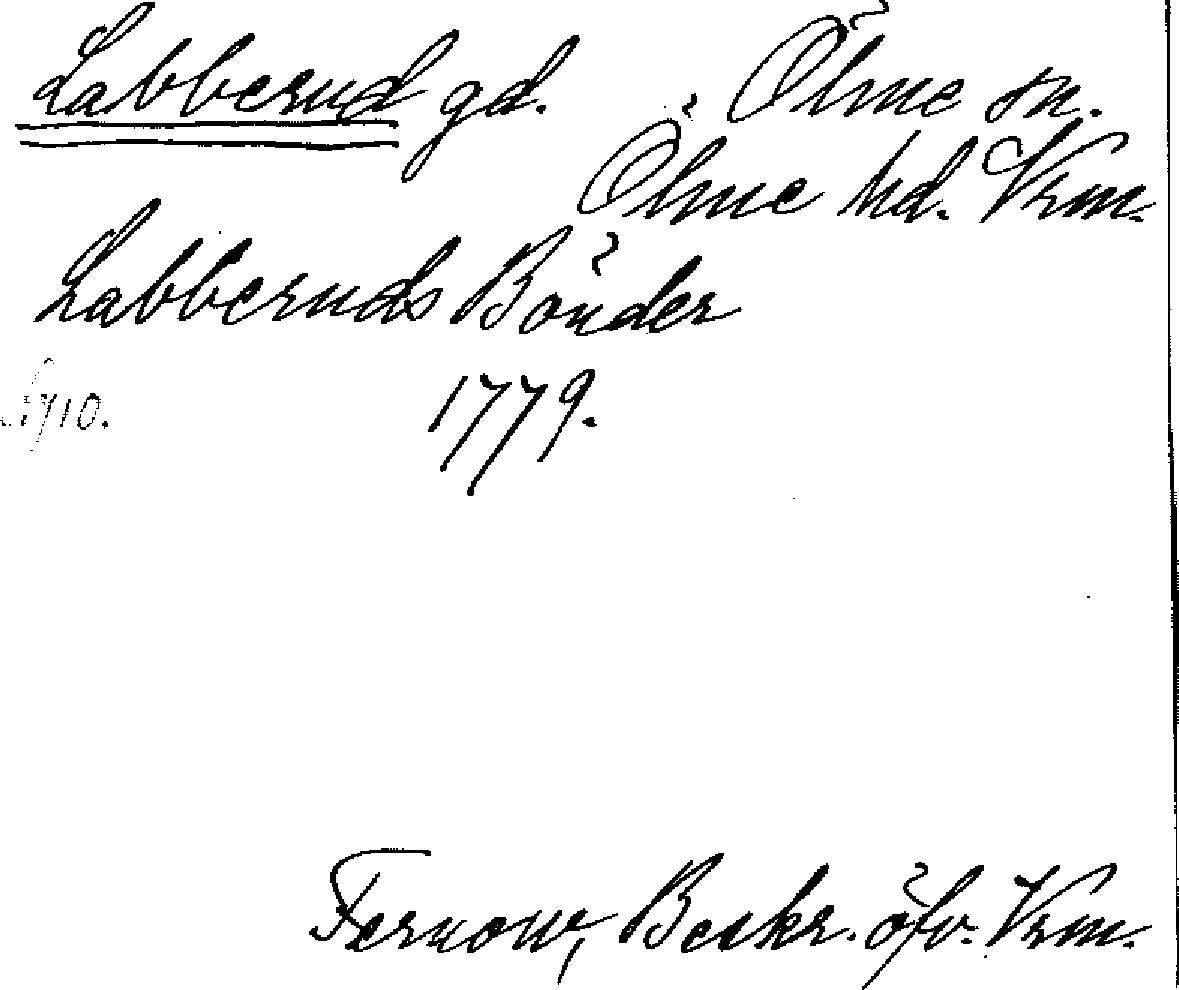 Labberud gd. Ölme sn.
Ölme hd. Vrm.
Labberuds Bönder
1779.
Fernow, Beskr. öfv. Vrm.